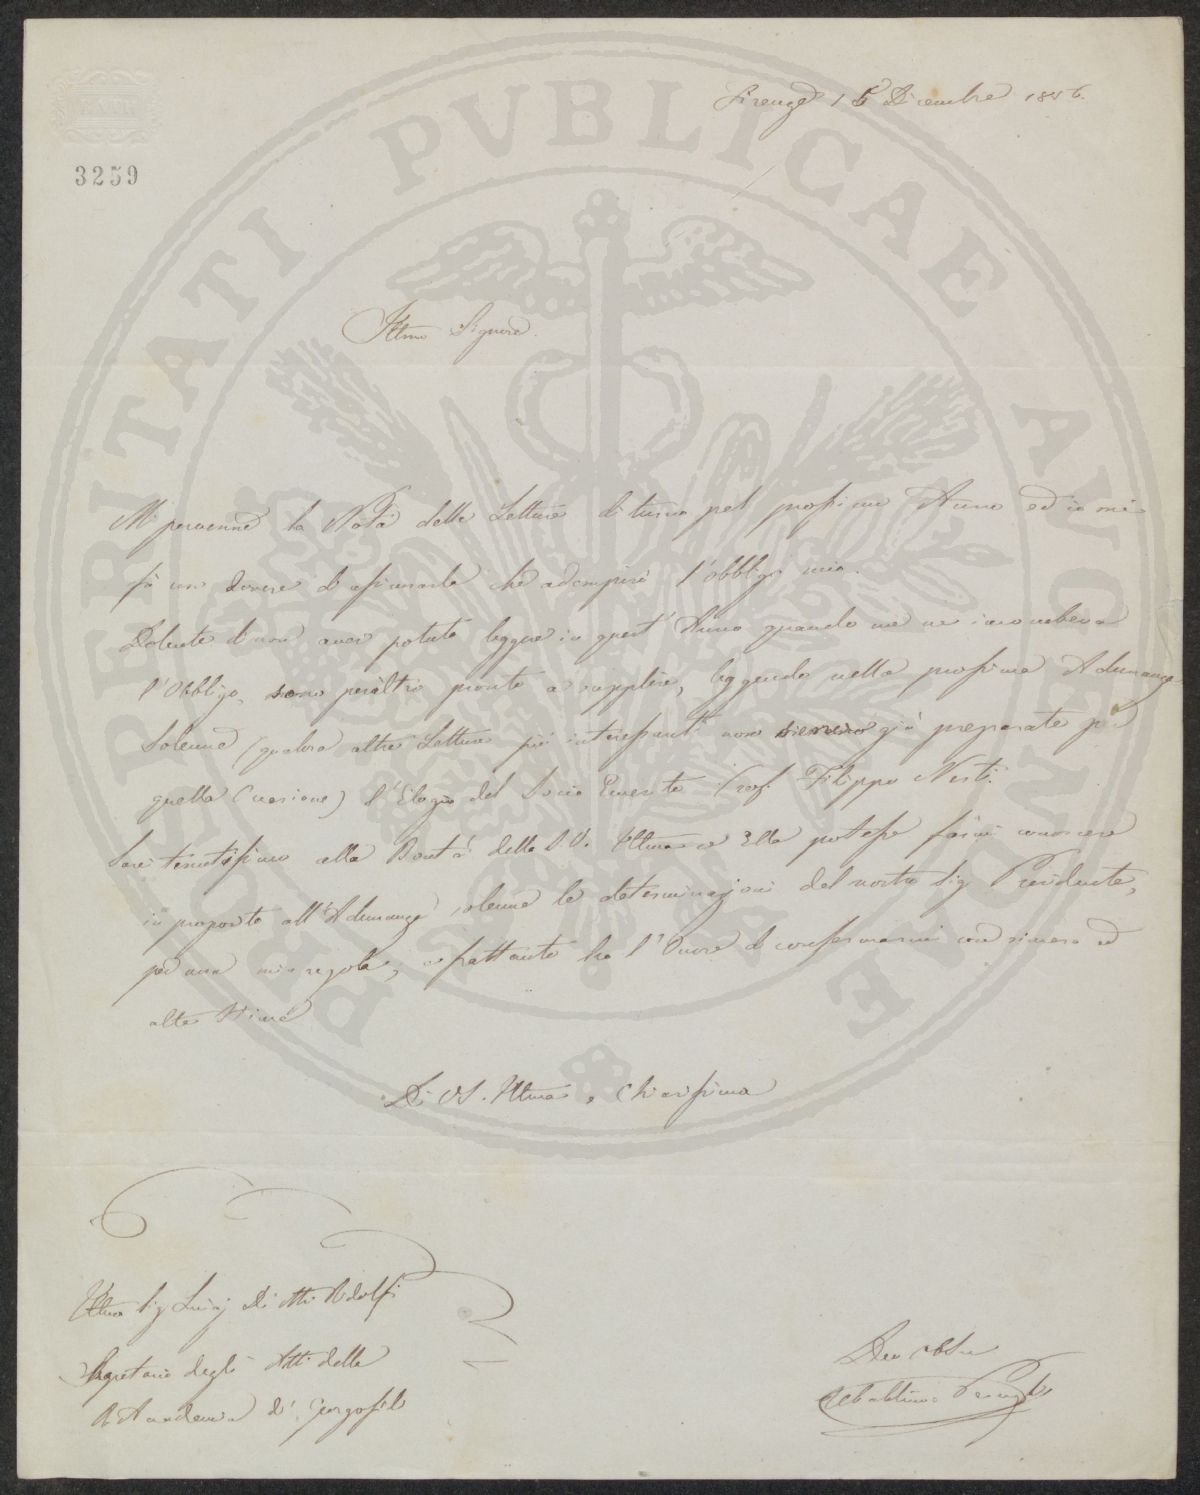 Firenze 15 Dicembre 1856.
3259
PROSPERITATI PVBLICAE AVGENDAE
Illmo Signore.
Mi pervenne la Nota delle Letture di turno pel prossimo Anno ed io mi
fò un dovere d'assicurarla che adempirò l'obbligo mio.
Dolente di non aver potuto leggere in quest'Anno quando me ne incombeva
l'Obbligo, sono peraltro pronto a supplire, leggendo nella prossima Adunanza
Solenne (qualora altre Letture più interessanti non sieno già preparate per
quella Occasione) l'Elogio del Socio Emerito Prof. Filippo Nesti.
Sarei tenutissimo alla Bontà della V.S. Illma se Ella potesse farmi conoscere
in proposito all'Adunanza solenne le determinazioni del nostro Sig. Presidente,
per una mia regola; e frattanto ho l'Onore di confermarmi con sincera ed
alta Stima
Di VS. Illma e Chiarissima
Illmo Sig Luigi De Ridolfi
Segretario degli Atti della
R. Accademia de' Georgofili
Dev Obbl